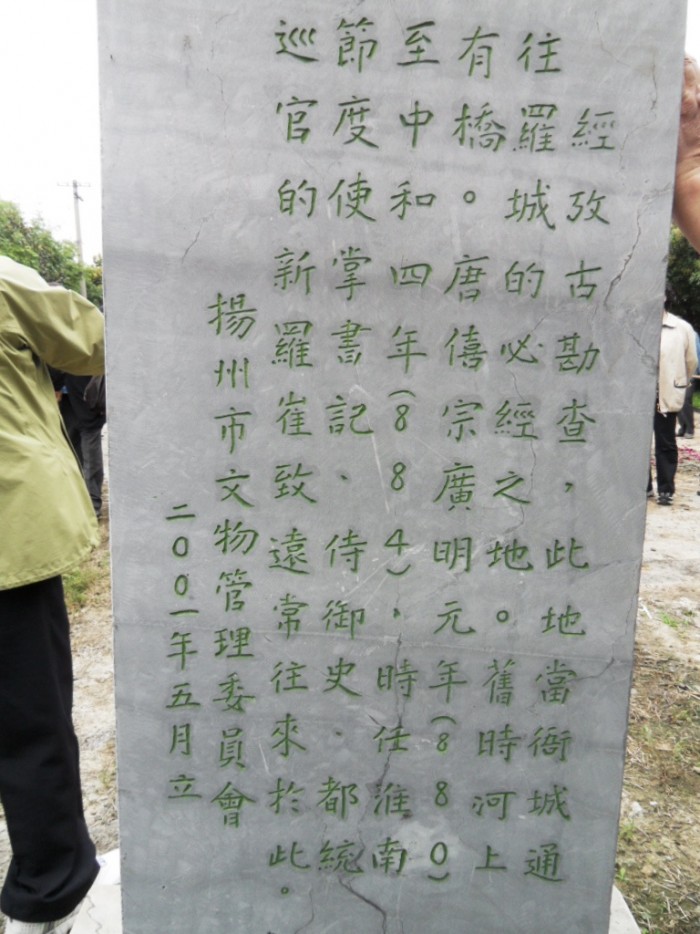 經攷古勘查，此地當衙城通
往羅城的必經之地。舊時河上
有橋。唐僖宗廣明元年(880)
至中和四年(884)，時任淮南
節度使掌書記、侍御史、都統
巡官的新羅崔致遠常往來於此。
揚州市文物管理委員會
二00一年五月立